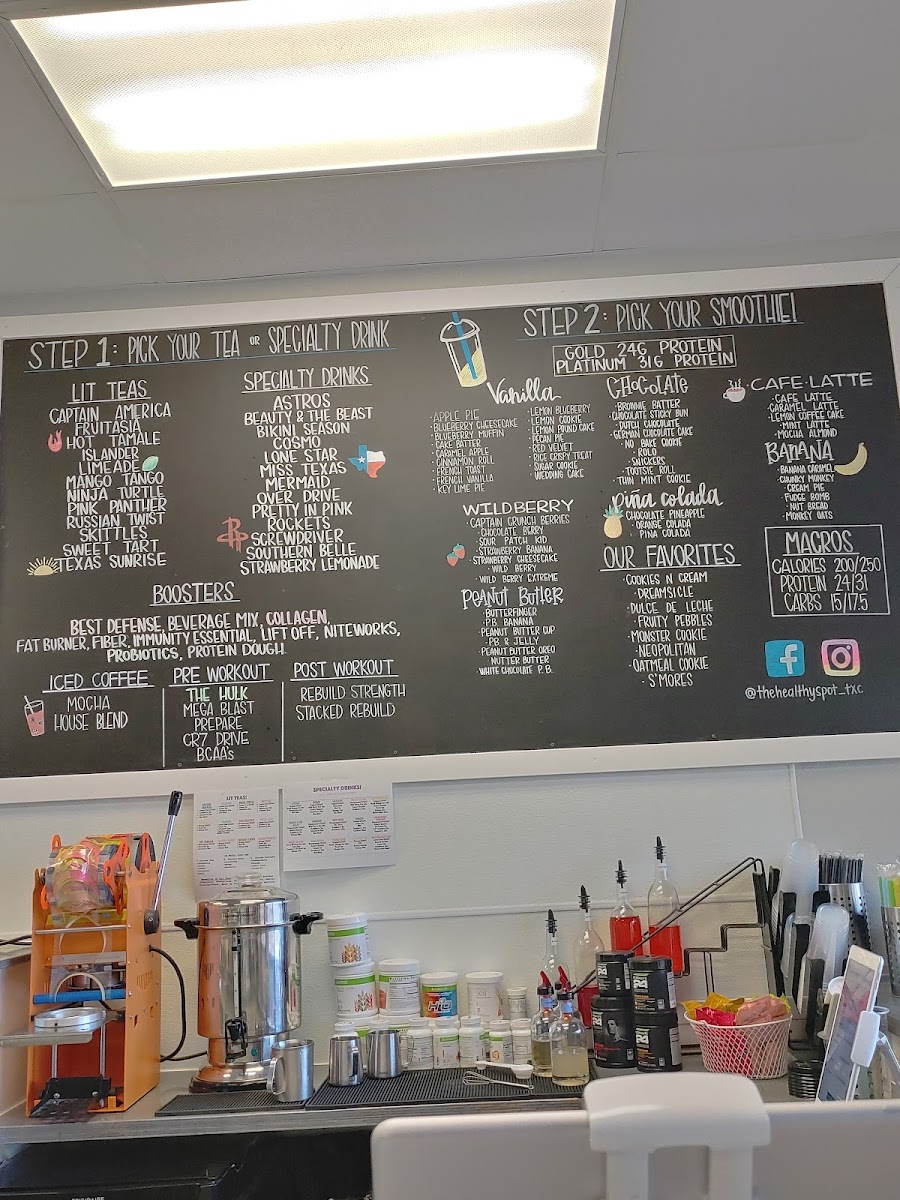 STEP 1: PICK YOUR TEA OR SPECIALTY DRINK
LIT TEAS
CAPTAIN AMERICA
FRUITASIA
HOT TAMALE
ISLANDER
LIMEADE
MANGO TANGO
NINJA TURTLE
PINK PANTHER
RUSSIAN TWIST
SKITTLES
SWEET TART
TEXAS SUNRISE
SPECIALTY DRINKS
ASTROS
BEAUTY & THE BEAST
BIKINI SEASON
COSMO
LONE STAR
MISS TEXAS
MERMAID
OVER DRIVE
PRETTY IN PINK
ROCKETS
SCREWDRIVER
SOUTHERN BELLE
STRAWBERRY LEMONADE
BOOSTERS
BEST DEFENSE, BEVERAGE MIX, COLLAGEN,
FAT BURNER, FIBER, IMMUNITY ESSENTIAL, LIFT OFF, NITEWORKS,
PROBIOTICS, PROTEIN DOUGH.
ICED COFFEE
MOCHA
HOUSE BLEND
PRE WORKOUT
THE HULK
MEGA BLAST
PREPARE
CR7 DRIVE
BCAA's
POST WORKOUT
REBUILD STRENGTH
STACKED REBUILD
STEP 2: PICK YOUR SMOOTHIE!
GOLD 24G PROTEIN
PLATINUM 31G PROTEIN
Vanilla
· APPLE PIE
· BLUEBERRY CHEESECAKE
· BLUEBERRY MUFFIN
· CAKE BATTER
· CARAMEL APPLE
· CINNAMON ROLL
· FRENCH TOAST
· FRENCH VANILLA
· KEY LIME PIE
· LEMON BLUEBERRY
· LEMON COOKIE
· LEMON POUND CAKE
· PECAN PIE
· RED VELVET
· RICE CRISPY TREAT
· SUGAR COOKIE
· WEDDING CAKE
WILDBERRY
· CAPTAIN CRUNCH BERRIES
· CHOCOLATE BERRY
· SOUR PATCH KID
· STRAWBERRY BANANA
· STRAWBERRY CHEESECAKE
· WILD BERRY
· WILD BERRY EXTREME
PEANUT BUTTER
· BUTTERFINGER
· P.B. BANANA
· PEANUT BUTTER CUP
· P.B. & JELLY
· PEANUT BUTTER OREO
· NUTTER BUTTER
· WHITE CHOCOLATE P.B.
CHOCOLATE
· BROWNIE BATTER
· CHOCOLATE STICKY BUN
· DUTCH CHOCOLATE
· GERMAN CHOCOLATE CAKE
· NO BAKE COOKIE
· ROLO
· SNICKERS
· TOOTSIE ROLL
· THIN MINT COOKIE
piña colada
· CHOCOLATE PINEAPPLE
· ORANGE COLADA
· PINA COLADA
OUR FAVORITES
· COOKIES N CREAM
· DREAMSICLE
· DULCE DE LECHE
· FRUITY PEBBLES
· MONSTER COOKIE
· NEOPOLITAN
· OATMEAL COOKIE
· S'MORES
· CAFE · LATTE
· CAFE LATTE
· CARAMEL LATTE
· LEMON COFFEE CAKE
· MINT LATTE
· MOCHA ALMOND
BANANA
· BANANA CARAMEL
· CHUNKY MONKEY
· CREAM PIE
· FUDGE BOMB
· NUT BREAD
· MONKEY OATS
MACROS
CALORIES 200/250
PROTEIN 24/31
CARBS 15/17.5
@thehealthyspot_txc
LIT TEAS!
SPECIALTY DRINKS!